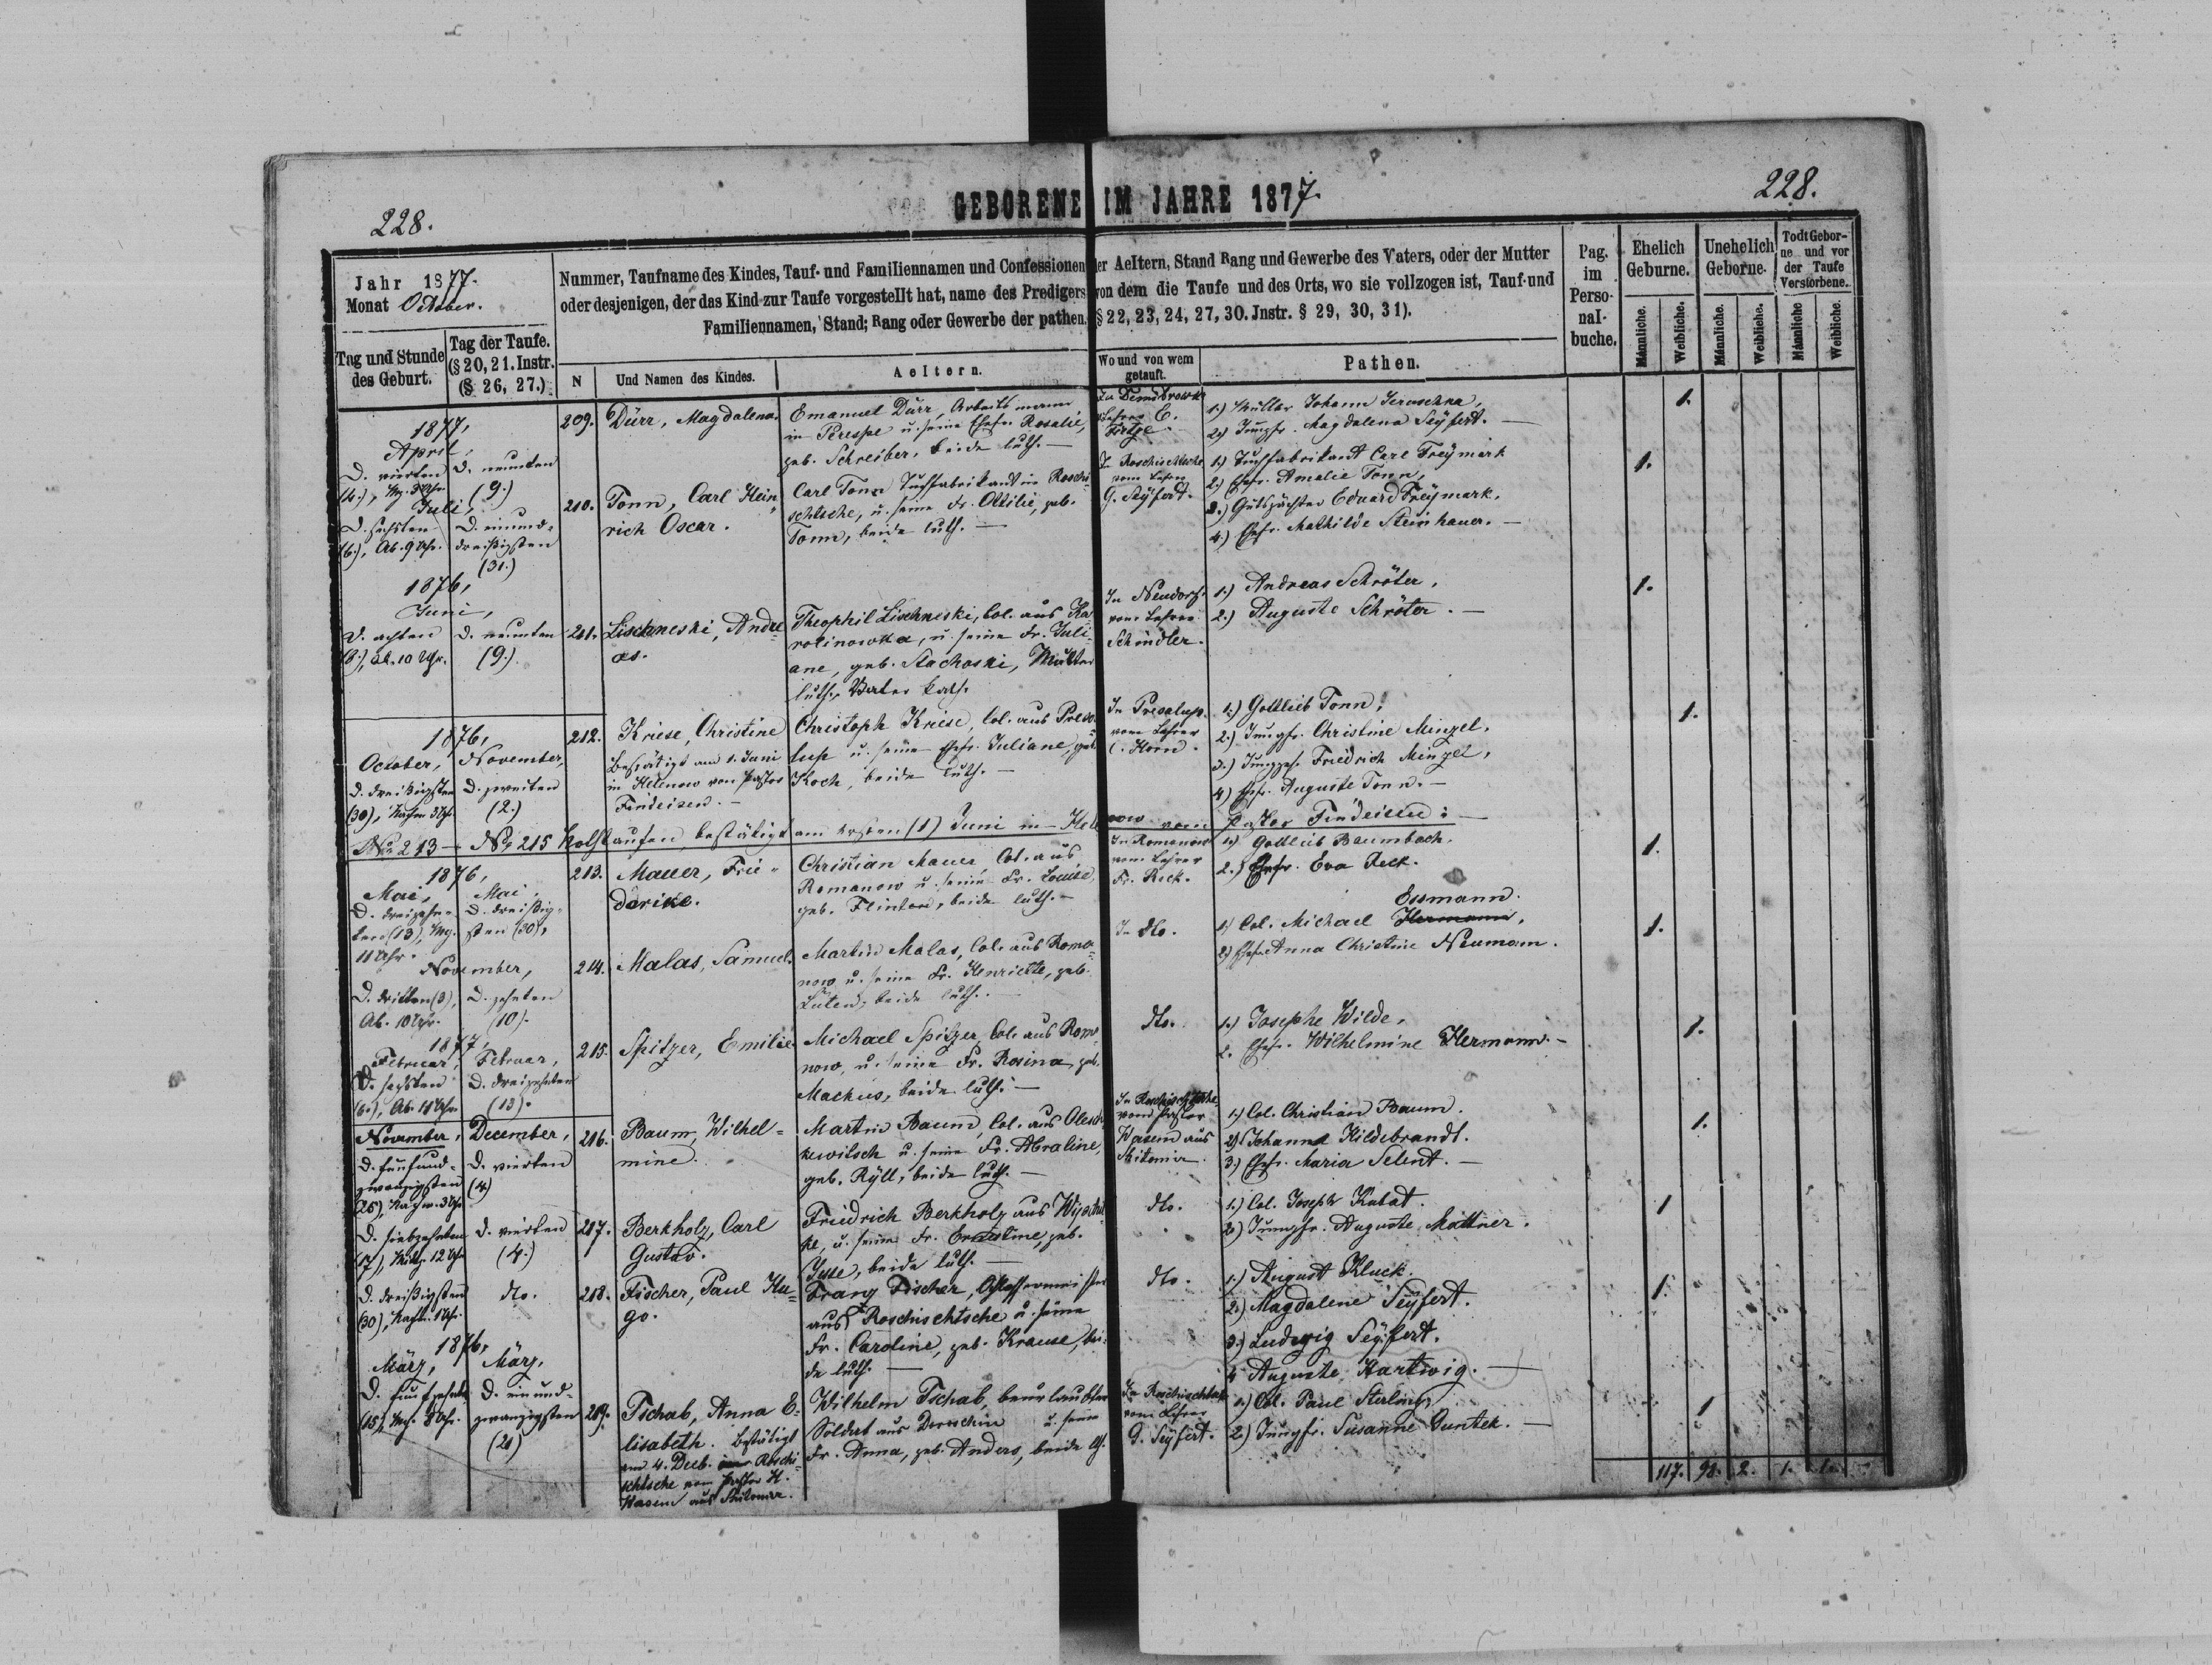 228.
GEBORENE IM JAHRE 1877.
228.
Jahr 1877.
Monat October.
Tag und Stunde
des Geburt.
Tag der Taufe.
(§ 20, 21. Instr.
(§ 26, 27.)
Nummer, Taufname des Kindes, Tauf- und Familiennamen und Confessionen der Aeltern, Stand Rang und Gewerbe des Vaters, oder der Mutter
oder desjenigen, der das Kind zur Taufe vorgestellt hat, name des Predigers von dem die Taufe und des Orts, wo sie vollzogen ist, Tauf-und
Familiennamen, Stand; Rang oder Gewerbe der pathen. § 22, 23, 24, 27, 30. Jnstr. § 29, 30, 31).
N
Und Namen des Kindes.
Aeltern.
Wo und von wem
getauft.
Pathen.
Pag.
im
Perso-
nal-
buche.
Ehelich
Geburne.
Unehelich
Geborne.
Todt Gebor-
ne und vor
der Taufe
Verstorbene.
Männliche.
Weibliche.
Männliche.
Weibliche.
Männliche
Weibliche.
1877,
April,
D. vierten
(4.), Mg. 3 Uhr
D. neunten
(9.)
209.
Dürr, Magdalena.
Emanuel Dürr, Arbeitsmann
in Perespe u. seine Ehefr. Rosalie,
geb. Schreiber, beide luth. —
Lehrer C.
1.) Müller Johann Jeruschka,
2.) Jungfr. Magdalena Seyfert. —
1.
Juli,
D. sechsten
(6.), Ab. 9 Uhr.
D. einund-
dreißigsten
(31.)
210.
Tonn, Carl Hein-
rich Oscar.
Carl Tonn Tuchfabrikant in Roschi-
schtsche, u. seine Fr. Ottilie, geb.
Tonn, beide luth. —
In Roschischtsche
vom Lehrer
G. Seyfert.
1.) Tuchfabrikant Carl Freymark
2.) Ehefr. Amalie Tonn,
3.) Gutspächter Eduard Freymark,
4.) Ehefr. Mathilde Steinhauer. —
1.
1876,
Juni,
D. achten
(8.), Ab. 10 Uhr.
D. neunten
(9.)
211.
Lischneski, Andre-
as.
Theophil Lischneski, Col. aus Ka-
rolinowka, u. seine Fr. Juli-
ane, geb. Stachoski, Mutter
luth., Vater kath.
In Neudorf
vom Lehrer
Schindler.
1.) Andreas Schröter,
2.) Auguste Schröter. —
1.
1876,
October,
D. dreißigsten
(30), Nachm. 3 Uhr
November,
D. zweiten
(2.)
212.
Kriese, Christine
Bestätigt am 1. Juni
in Helenow von Pastor
Findeisen. —
Christoph Kriese, Col. aus Preso-
lup u. seine Ehefr. Juliane, geb.
Koch, beide luth. —
In Presalup
vom Lehrer
C. Horn.
1.) Gottlieb Tonn,
2.) Jungfr. Christine Minzel,
3.) Junggs. Friedrich Minzel,
4) Ehfr. Auguste Tonn. —
1.
No 213 — No 215 Nothtaufen bestätigt am ersten (1) Juni in Helenow vom Pastor Findeisen: —
1876,
Mai,
D. dreizehn-
ten (13), Mg.
11 Uhr.
Mai,
D. dreißig-
sten (30),
213.
Mauer, Frie-
derike.
Christian Mauer, Col. aus
Romanow u. seine Fr. Louise,
geb. Flinter, beide luth. —
In Romanow
vom Lehrer
Fr. Reck.
1.) Gottlieb Baumbach.
2.) Ehefr. Eva Reck.
1.
November,
D. dritten (3),
Ab. 10 Uhr.
D. zehnten
(10).
214.
Malas, Samuel.
Martin Malas, Col. aus Roma-
now u. seine Fr. Henriette, geb.
beide luth. —
In dto.
Essmann.
1) Col. Michael Hermann,
2) Ehefr. Anna Christine Neumann.
1.
1877,
Februar,
D. sechsten
(6.), Ab. 11 Uhr
Februar,
D. dreizehnten
(13).
215.
Spitzer, Emilie.
Michael Spitzer, Col. aus Roma-
now, u. seine Fr. Rosina geb.
Mackus, beide luth. —
dto.
1.) Josephe Wilde,
2. Ehefr. Wilhelmine Hermann. —
1.
November,
D. fünfund-
zwanzigsten
(25), Nachm. 3 Uhr
December,
D. vierten
(4)
216.
Baum, Wilhel-
mine.
Martin Baum, Col. aus Olesch-
kewitsch u. seine Fr.
geb. Ryll, beide luth. —
In Roschischtsche
vom Pastor
Wasem aus
Shitomir.
1.) Col. Christian Baum.
2) Johann Hildebrandt.
3.) Ehefr. Maria Selent. —
1.
D. siebzehnten
(17), Mittg. 12 Uhr
D. vierten
(4.)
217.
Berkholz, Carl
Gustav.
Friedrich Berkholz aus
u. seine Fr. Ernestine, geb.
beide luth. —
dto.
1.) Col. Joseph Kabat.
2.) Jungfr. Auguste Mattner.
1
D. dreißigsten
(30), Nachts 1 Uhr.
dto.
218.
Fischer, Paul Hu-
go.
Franz Fischer, Schlossermeister
aus Roschischtsche u. seine
Fr. Caroline, geb. Krause, bei-
de luth. —
dto.
1.) August Kluck.
2.) Magdalene Seyfert.
3.) Ludwig Seyfert.
4 Auguste Hartwig. —
1.
1876,
März,
D. fünfzehnten
(15), Mg. 8 Uhr.
März,
D. einund-
zwanzigsten
(21)
219.
Tschab, Anna E-
lisabeth. Bestätigt
am 4. Decb. Roschi-
schtsche vom Pastor H.
Wasem aus Shitomir.
Wilhelm Tschab, beurlaubter
Soldat aus Dorochin u. seine
Fr. Anna, geb. Anders, beide
In Roschischtsche
vom Lehrer
G. Seyfert.
1.) Col. Paul Sterling,
2.) Jungfr. Susanne Guntek. —
1
117. 98. 2. 1. 1. —